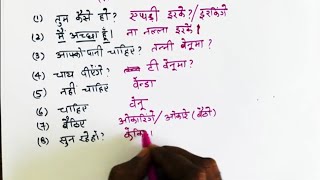 (1) तुम कैसे हो? एप्पडी इरके?/इरकिंगे
(2) मैं अच्छा हूँ। ना नल्ला इरके।
(3) आपको पानी चाहिए? तन्नी वेनूमा?
(4) चाय पीएंगे? टी वेनूमा?
(5) नहीं चाहिए वेन्डा
(6) चाहिए वेनू
(7) बैठिए ओकारिंगे/ओकारे (बैठो)
(8) सुन रहे हो?